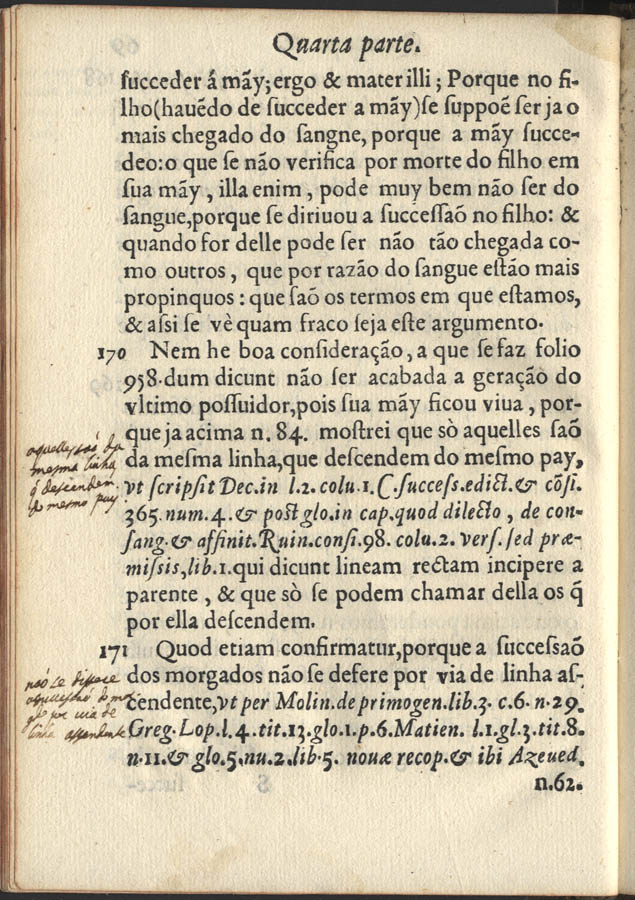 Quarta parte.
ſucceder á mãy; ergo & mater illi; Porque no fi-
lho (hauẽdo de ſucceder a mãy) ſe ſuppoẽ ser ja o
mais chegado do ſangne, porque a mãy ſucce-
deo: o que ſe não verifica por morte do filho em
ſua mãy, illa enim, pode muy bem não ſer do
ſangue, porque ſe diriuou a ſucceſſaõ no filho: &
quando for delle pode ſer não tão chegada co-
mo outros, que por razão do ſangue eſtão mais
propinquos: que ſaõ os termos em que eſtamos,
& aſsi ſe vè quam fraco ſeja eſte argumento.
170 Nem he boa conſideração, a que ſe faz folio
958. dum dicunt não ſer acabada a geração do
vltimo poſſuidor, pois ſua mãy ficou viua, por-
que ja acima n. 84. moſtrei que sò aquelles ſaõ
da meſma linha, que deſcendem do meſmo pay,
vt ſcripſit Dec. in l. 2. colu. 1. C. ſucceſs. edict. & cõſi.
365. num. 4. & poſt glo. in cap. quod dilecto, de con-
ſang. & affinit. Ruin. conſi. 98. colu. 2. verſ. ſed præ-
miſsis, lib. 1. qui dicunt lineam rectam incipere a
parente, & que sò ſe podem chamar della os q̃
por ella deſcendem.
aquelles saõ da
mesma linha
q̃ descendem
do mesmo pay
171 Quod etiam confirmatur, porque a ſucceſſaõ
dos morgados não ſe defere por via de linha aſ-
cendente, vt per Molin. de primogen. lib. 3. c. 6. n. 29.
Greg. Lop. l. 4. tit. 13. glo. 1. p. 6. Matien. l. 1. gl. 3. tit. 8.
n. 11. & glo. 5. nu. 2. lib. 5. nouæ recop. & ibi Azeued.
n. 62.
naõ se
por via de
linha assendente